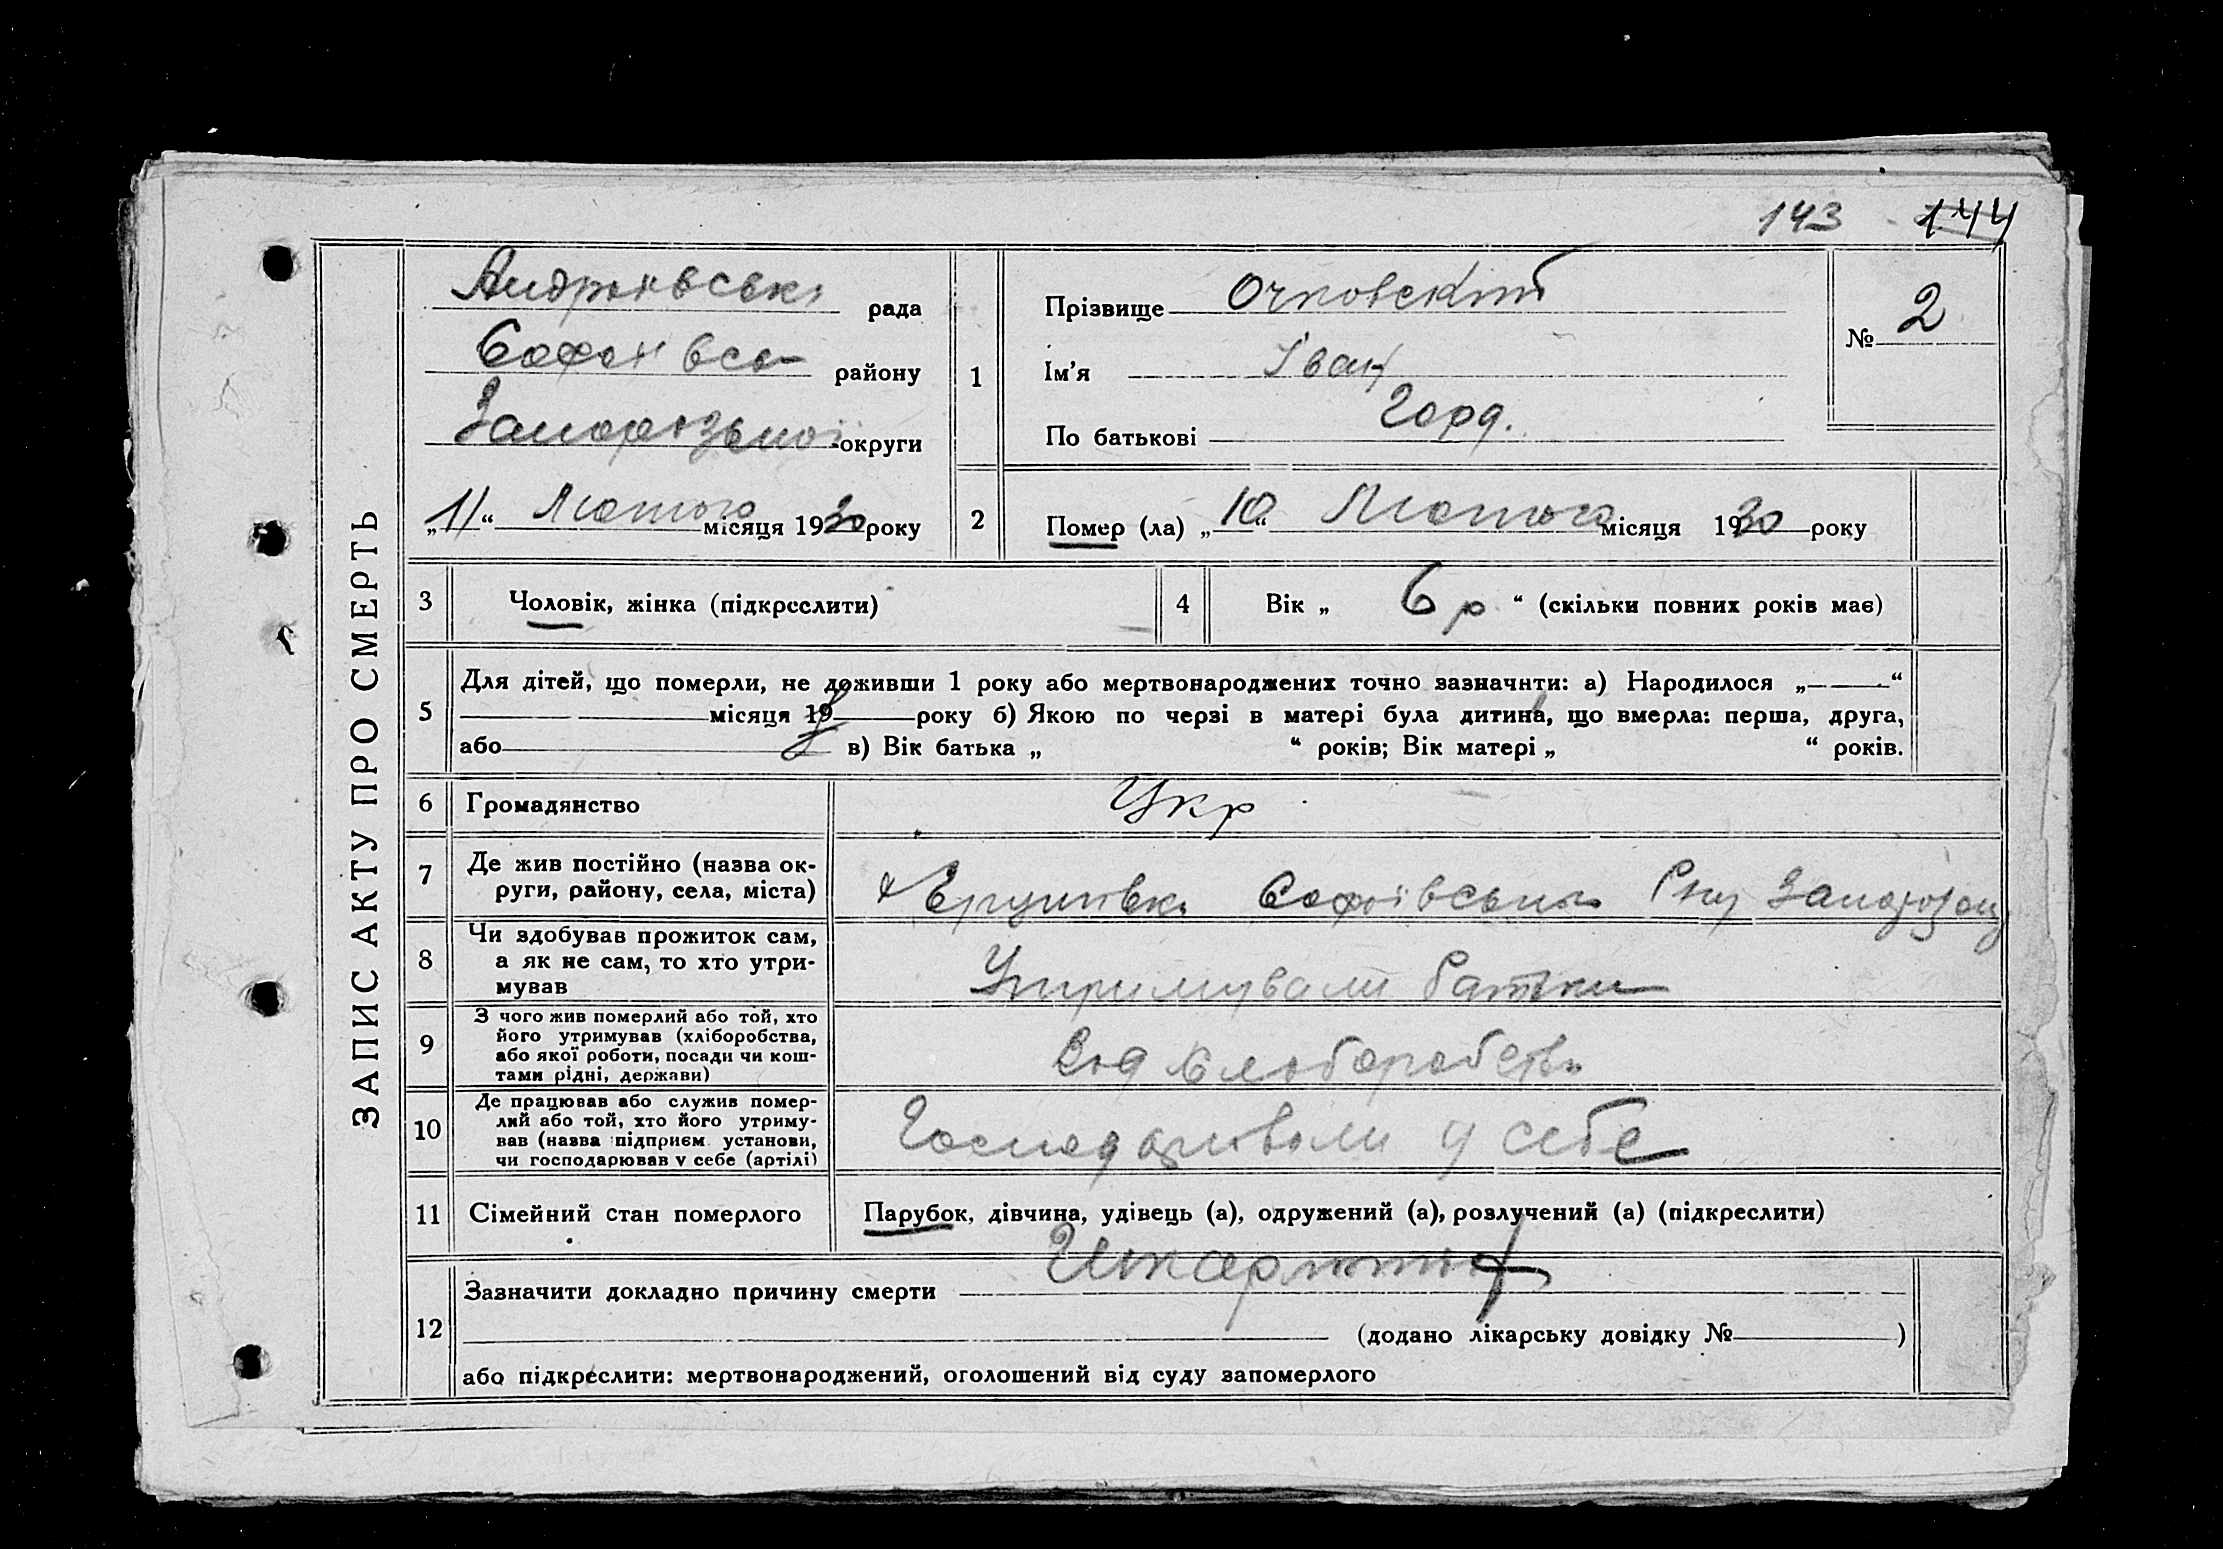 143 144
ЗАПИС АКТУ ПРО СМЕРТЬ
Андріївська рада
Софіївсь району
Запорізької округи
„11“ Лютого місяця 1930 року
1
Прізвище Очковский
Ім'я Іван
По батькові Горд.
№ 2
2
Помер (ла) „10“ Лютого місяця 1930 року
3 Чоловік, жінка (підкреслити)
4 Вік „ 6 р “ (скільки повних років має)
5
Для дітей, що померли, не доживши 1 року або мертвонароджених точно зазначити: а) Народилося „ “
місяця 19 року б) Якою по черзі в матері була дитина, що вмерла: перша, друга,
або в) Вік батька „ “ років; Вік матері „ “ років.
6 Громадянство Укр
7 Де жив постійно (назва ок-
руги, району, села, міста)
Софіївського Р-ну
8 Чи здобував прожиток сам,
а як не сам, то хто утри-
мував
Утримували батьки
9 З чого жив померлий або той, хто
його утримував (хліборобства,
або якої роботи, посади чи кош-
тами рідні, держави)
Від хлібороб
10 Де працював або служив помер-
лий або той, хто його утриму-
вав (назва підприєм. установи,
чи господарював у себе (артілі)
Господарювали у себе
11 Сімейний стан померлого Парубок, дівчина, удівець (а), одружений (а), розлучений (а) (підкреслити)
12
Зазначити докладно причину смерти
(додано лікарську довідку № )
або підкреслити: мертвонароджений, оголошений від суду запомерлого